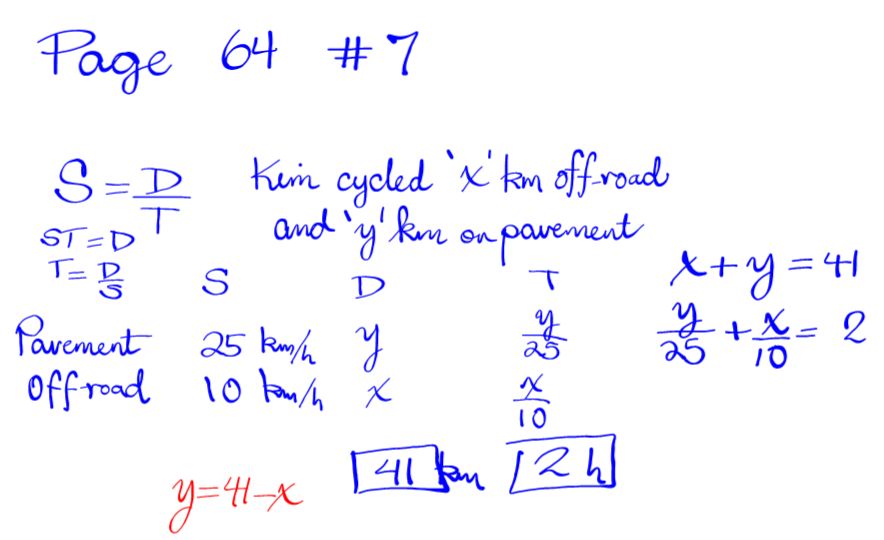 Page 64 #7
S = D/T
Kim cycled 'x' km off-road
and 'y' km on pavement
ST = D
T = D/S
S D T
x + y = 41
Pavement 25 km/h y y/25
y/25 + x/10 = 2
Off road 10 km/h x x/10
41 km 2 h
y = 41 - x